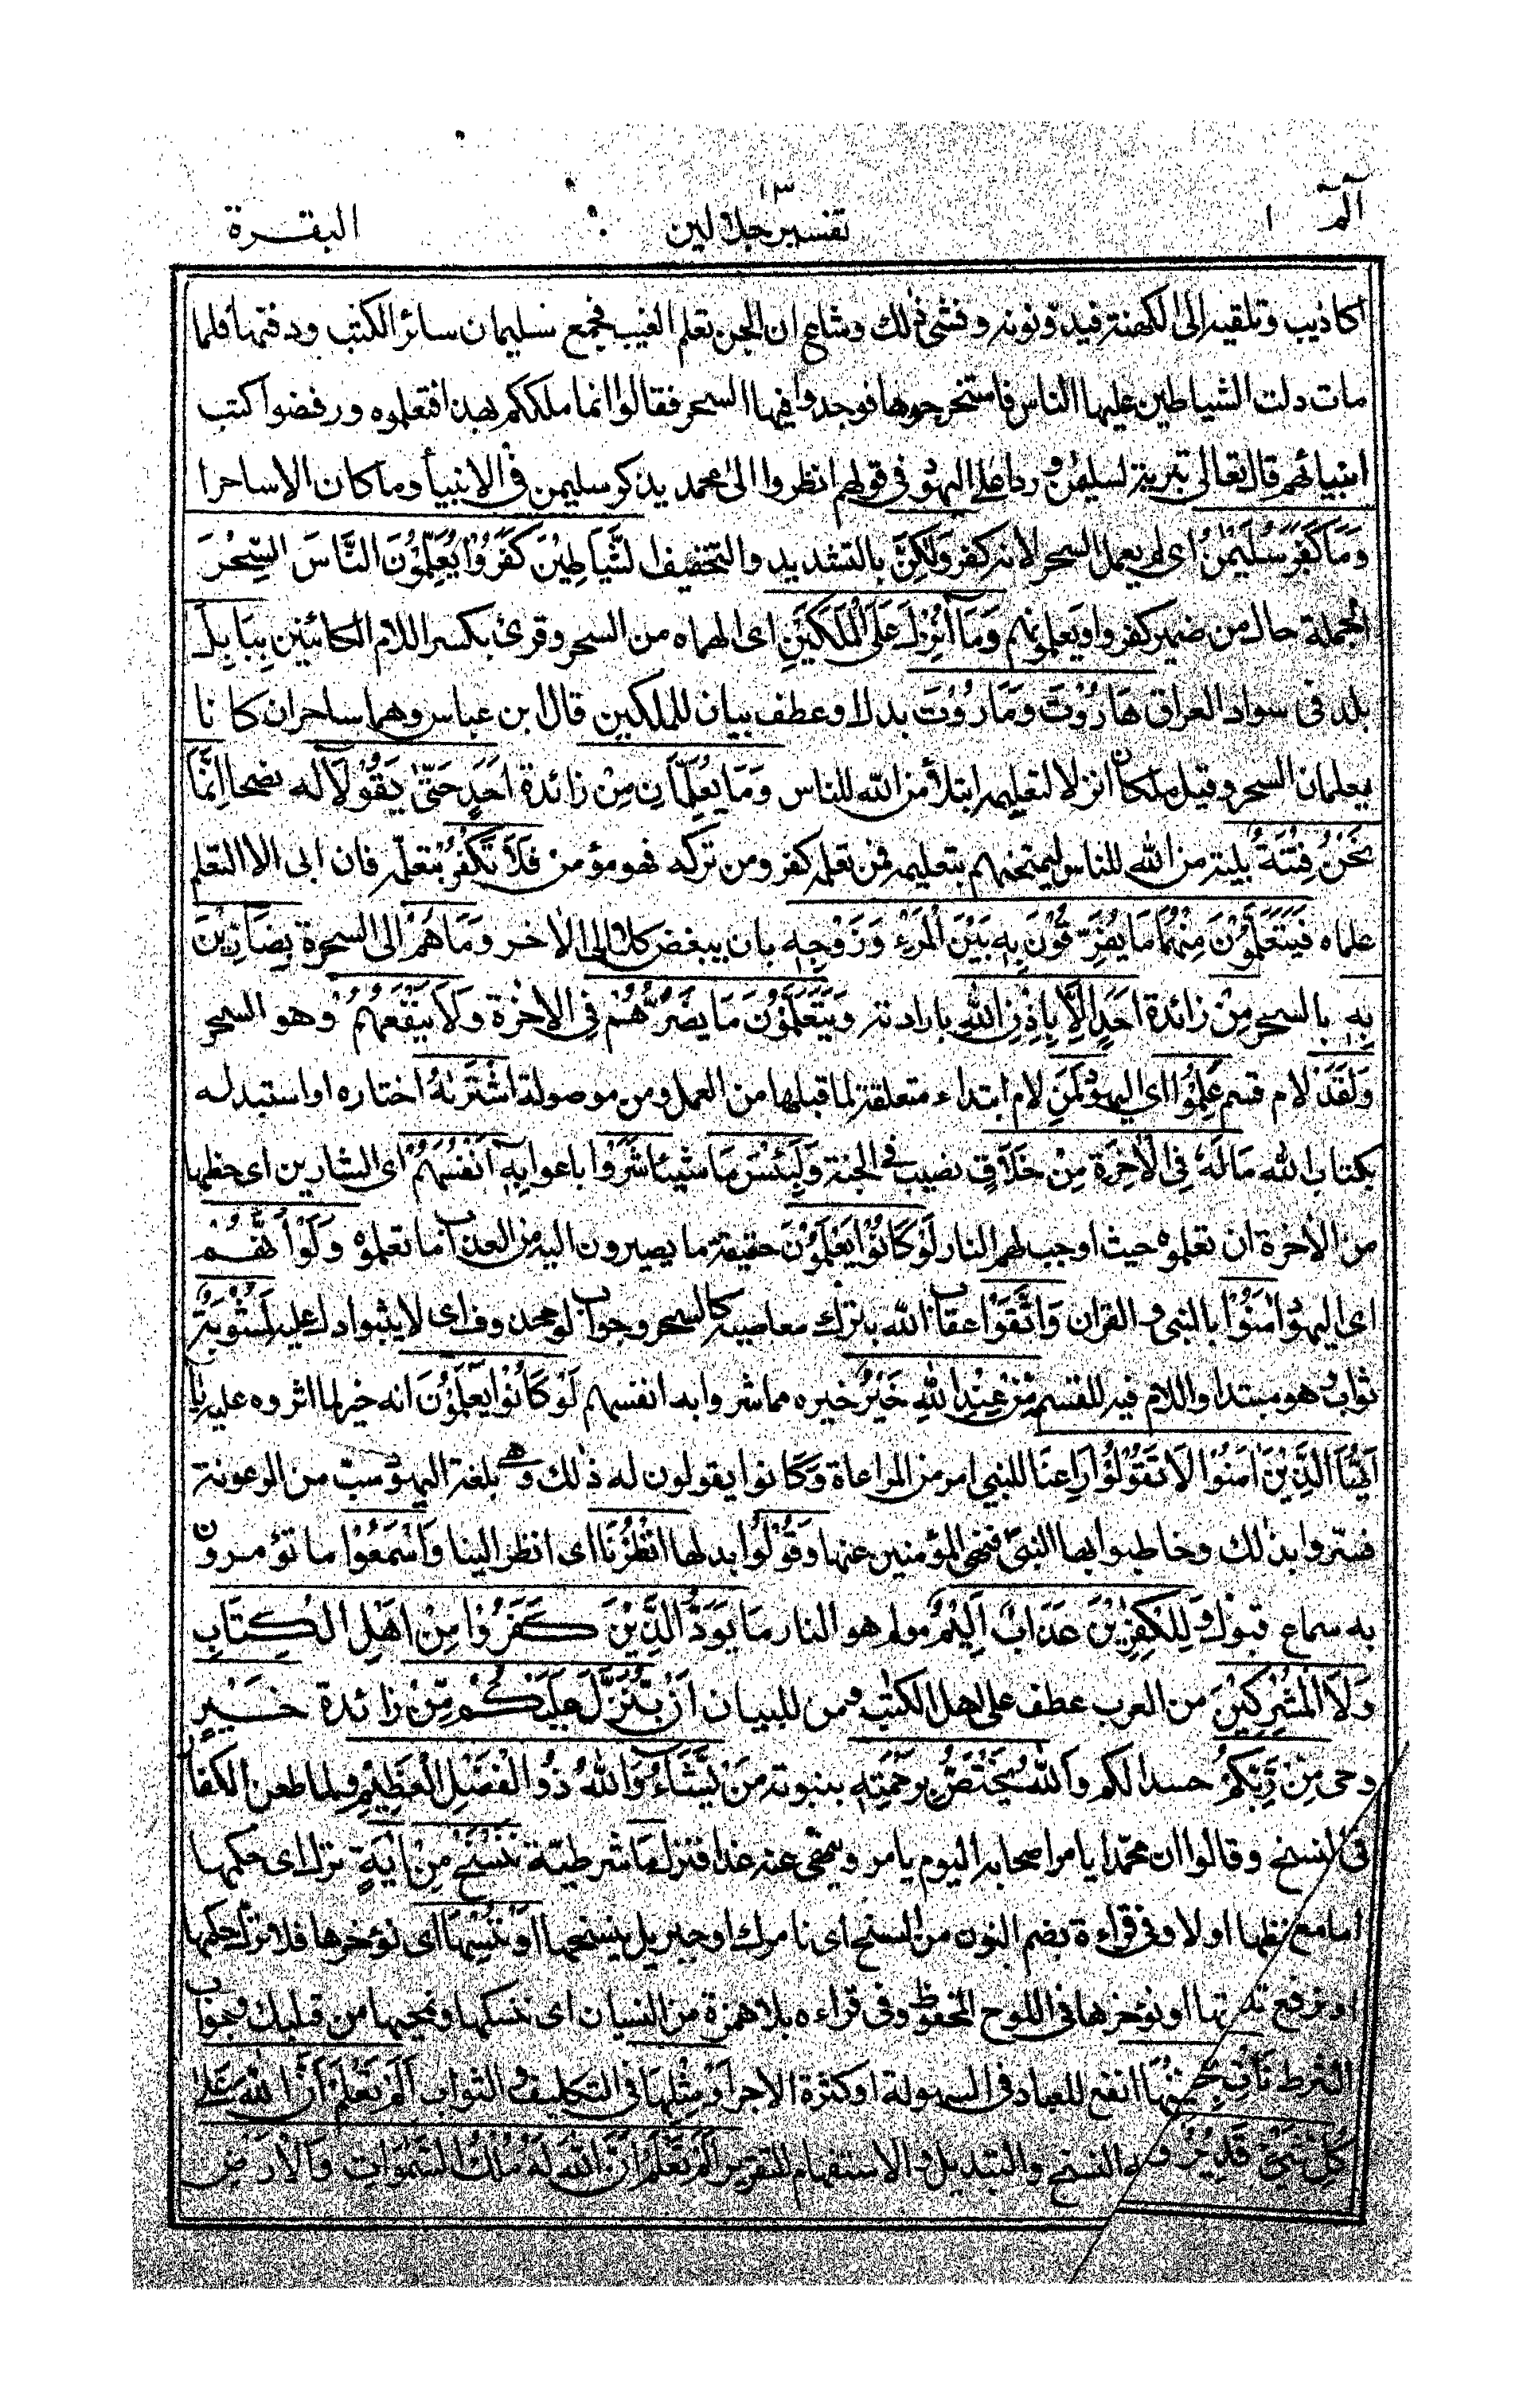 الٓمّٓ ١
١٣
تفسير جلالين
البقرة
اكاذيب وتلقيه الى الكهنة فيدونونه وفشى ذلك وشاع ان الجن تعلم الغيب فجمع سليمان سائر الكتب ودفنها فلما
مات دلت الشياطين عليها الناس فاستخرجوها فوجدوا فيها السحر فقالوا انما ملككم بهذا فتعلموه ورفضوا كتب
انبيائهم قال تعالى تبرية لسليمٰن وردا على اليهود فى قولهم انظروا الى محمد يذكر سليمن فى الانبياء وما كان الا ساحرا
وَمَا كَفَرَ سُلَيْمٰنُ اى لم يعمل السحر لانه كفر وَلٰكِنَّ بالتشديد والتخفيف الشَّيَاطِيْنَ كَفَرُوْا يُعَلِّمُوْنَ النَّاسَ السِّحْرَ
الجملة حال من ضمير كفروا ويعلمونهم وَمَا اُنْزِلَ عَلَى الْمَلَكَيْنِ اى الهماه من السحر وقرئ بكسر اللام الكائنين بِبَابِلَ
بلد فى سواد العراق هَارُوْتَ وَمَارُوْتَ بدل او عطف بيان للملكين قال ابن عباس وهما ساحران كانا
يعلمان السحر وقيل ملكان انزلا لتعليمه ابتلاء من الله للناس وَمَا يُعَلِّمَانِ مِنْ زائدة اَحَدٍ حَتّٰى يَقُوْلَا له نصحا اِنَّمَا
نَحْنُ فِتْنَةٌ بلية من الله للناس ليمتحنهم بتعليمه فمن تعلمه كفر ومن تركه فهو مؤمن فَلَا تَكْفُرْ بتعلمه فان ابى الا التعلم
علماه فَيَتَعَلَّمُوْنَ مِنْهُمَا مَا يُفَرِّقُوْنَ بِهٖ بَيْنَ الْمَرْءِ وَزَوْجِهٖ بان يبغض كلا الى الاخر وَمَا هُمْ الى السحرة بِضَارِّيْنَ
بِهٖ بالسحر مِنْ زائدة اَحَدٍ اِلَّا بِاِذْنِ اللهِ بارادته وَيَتَعَلَّمُوْنَ مَا يَضُرُّهُمْ فِى الْاٰخِرَةِ وَلَا يَنْفَعُهُمْ وهو السحر
وَلَقَدْ لام قسم عَلِمُوْا اى اليهود لَمَنِ لام ابتداء متعلقة لما قبلها من العمل ومن موصولة اشْتَرٰىهُ اختاره او استبدله
بكتاب الله مَا لَهٗ فِى الْاٰخِرَةِ مِنْ خَلَاقٍ نصيب فى الجنة وَلَبِئْسَ مَا شيئا شَرَوْا باعوا بِهٖ اَنْفُسَهُمْ اى الشارين اى حظها
من الاخرة ان تعلموه حيث اوجب لهم النار لَوْ كَانُوْا يَعْلَمُوْنَ حقيقة ما يصيرون اليه من العذاب ما تعلموه وَلَوْ اَنَّهُمْ
اى اليهود اٰمَنُوْا بالنبى والقران وَاتَّقَوْا عقاب الله بترك معاصيه كالسحر وجواب لو محذوف اى لا يثبوا دل عليه لَمَثُوْبَةٌ
ثواب وهو مبتدا واللام فيه للقسم مِّنْ عِنْدِ اللهِ خَيْرٌ خبره مما شروا به انفسهم لَوْ كَانُوْا يَعْلَمُوْنَ انه خير لما اثروه عليه يٰٓا
اَيُّهَا الَّذِيْنَ اٰمَنُوْا لَا تَقُوْلُوْا رَاعِنَا للنبى امر من المراعاة وَكَانوا يقولون له ذٰلك وهى بلغة اليهود سب من الرعونة
فسرّوا بذٰلك وخاطبوا بها النبىّ فنهى المؤمنين عنها وَقُوْلُوْا بدلها انْظُرْنَا اى انظر الينا وَاسْمَعُوْا ما تؤمرون
به سماع قبول وَلِلْكٰفِرِيْنَ عَذَابٌ اَلِيْمٌ مولم هو النار مَا يَوَدُّ الَّذِيْنَ كَفَرُوْا مِنْ اَهْلِ الْكِتَابِ
وَلَا الْمُشْرِكِيْنَ من العرب عطف على اهل الكتٰب ومن للبيان اَنْ يُّنَزَّلَ عَلَيْكُمْ مِّنْ زائدة خَيْرٍ
وحى مِنْ رَّبِّكُمْ حسدا لكم وَاللهُ يَخْتَصُّ بِرَحْمَتِهٖ بنبوته مَنْ يَّشَاءُ وَاللهُ ذُو الْفَضْلِ الْعَظِيْمِ ولما طعن الكفار
فى النسخ وقالوا ان محمّدا يامر اصحابه اليوم بامر وينهى عنه غدا فنزل مَا شرطيّة نَنْسَخْ مِنْ اٰيَةٍ نزل اى حكمها
اما مع لفظها او لا وفى قراءة بضم النون من النسخ اى نامرك او جبريل بنسخها اَوْ نَنْسَاهَا اى نؤخرها فلا نزل حكمها
او نرفع تلاوتها او نؤخرها فى اللوح المحفوظ وفى قراءه بلا همزة من النسيان اى ننسكها ونمحيها من قلبك وجواب
الشرط نَأْتِ بِخَيْرٍ مِّنْهَا انفع للعباد فى السهولة او كثرة الاجر اَوْ مِثْلِهَا فى التكليف والثواب اَلَمْ تَعْلَمْ اَنَّ اللهَ عَلٰى
كُلِّ شَىْءٍ قَدِيْرٌ ومنه النسخ والتبديل والاستفهام للتقرير اَلَمْ تَعْلَمْ اَنَّ اللهَ لَهٗ مُلْكُ السَّمٰوَاتِ وَالْاَرْضِ